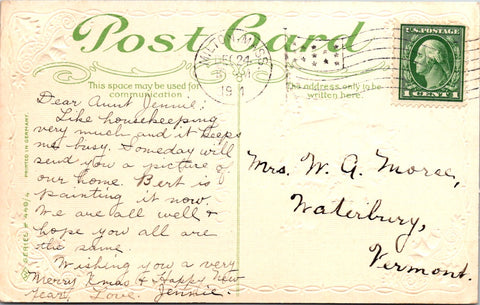 Post Card
This space may be used for
communication
The address only to be
written here.
MILTON, MASS.
DEC 24
U.S. POSTAGE
1 CENT 1
PRINTED IN GERMANY.
Dear Aunt Jennie:
Like housekeeping
very much and it keeps
me busy. Someday will
send you a picture of
our home. Bert is
painting it now.
We are all well &
hope you all are
the same.
Wishing you a very
Merry Xmas & Happy New
Year, Love. Jennie.
Mrs. W. G. Morse,
Waterbury,
Vermont.